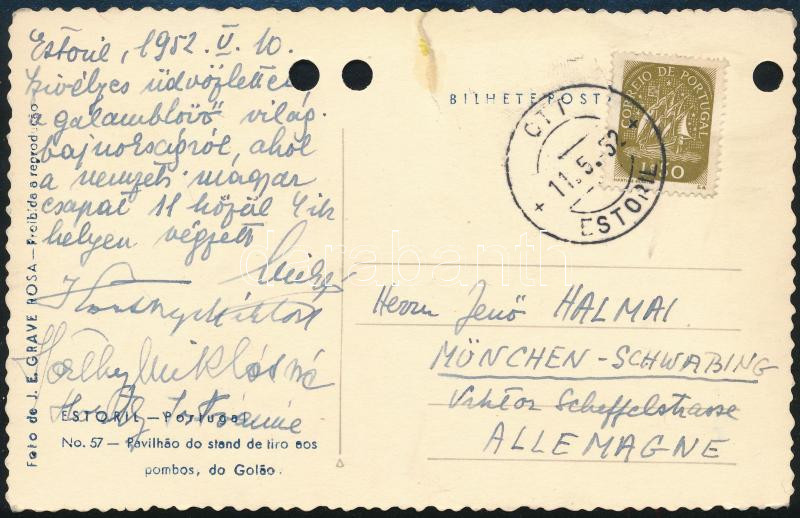 Estoril, 1952. V. 10.
Szívélyes üdvözlettel
a galamblövő világ-
bajnokságról, ahol
a nemzeti magyar
csapat 11 közül 4-ik
helyen végzett
Horthy Miklósné
Horthy Istvánné
ESTORIL — Portugal
No. 57 — Pavilhão do stand de tiro aos
pombos, do Golão.
Foto de J. E. GRAVE ROSA — Proibida a reprodução
BILHETE POSTAL
CORREIO DE PORTUGAL
1$50
CTT
11.5.52
ESTORIL
Herrn Jenő HALMAI
MÜNCHEN - SCHWABING
Viktor Scheffelstrasse
ALLEMAGNE
darabanth